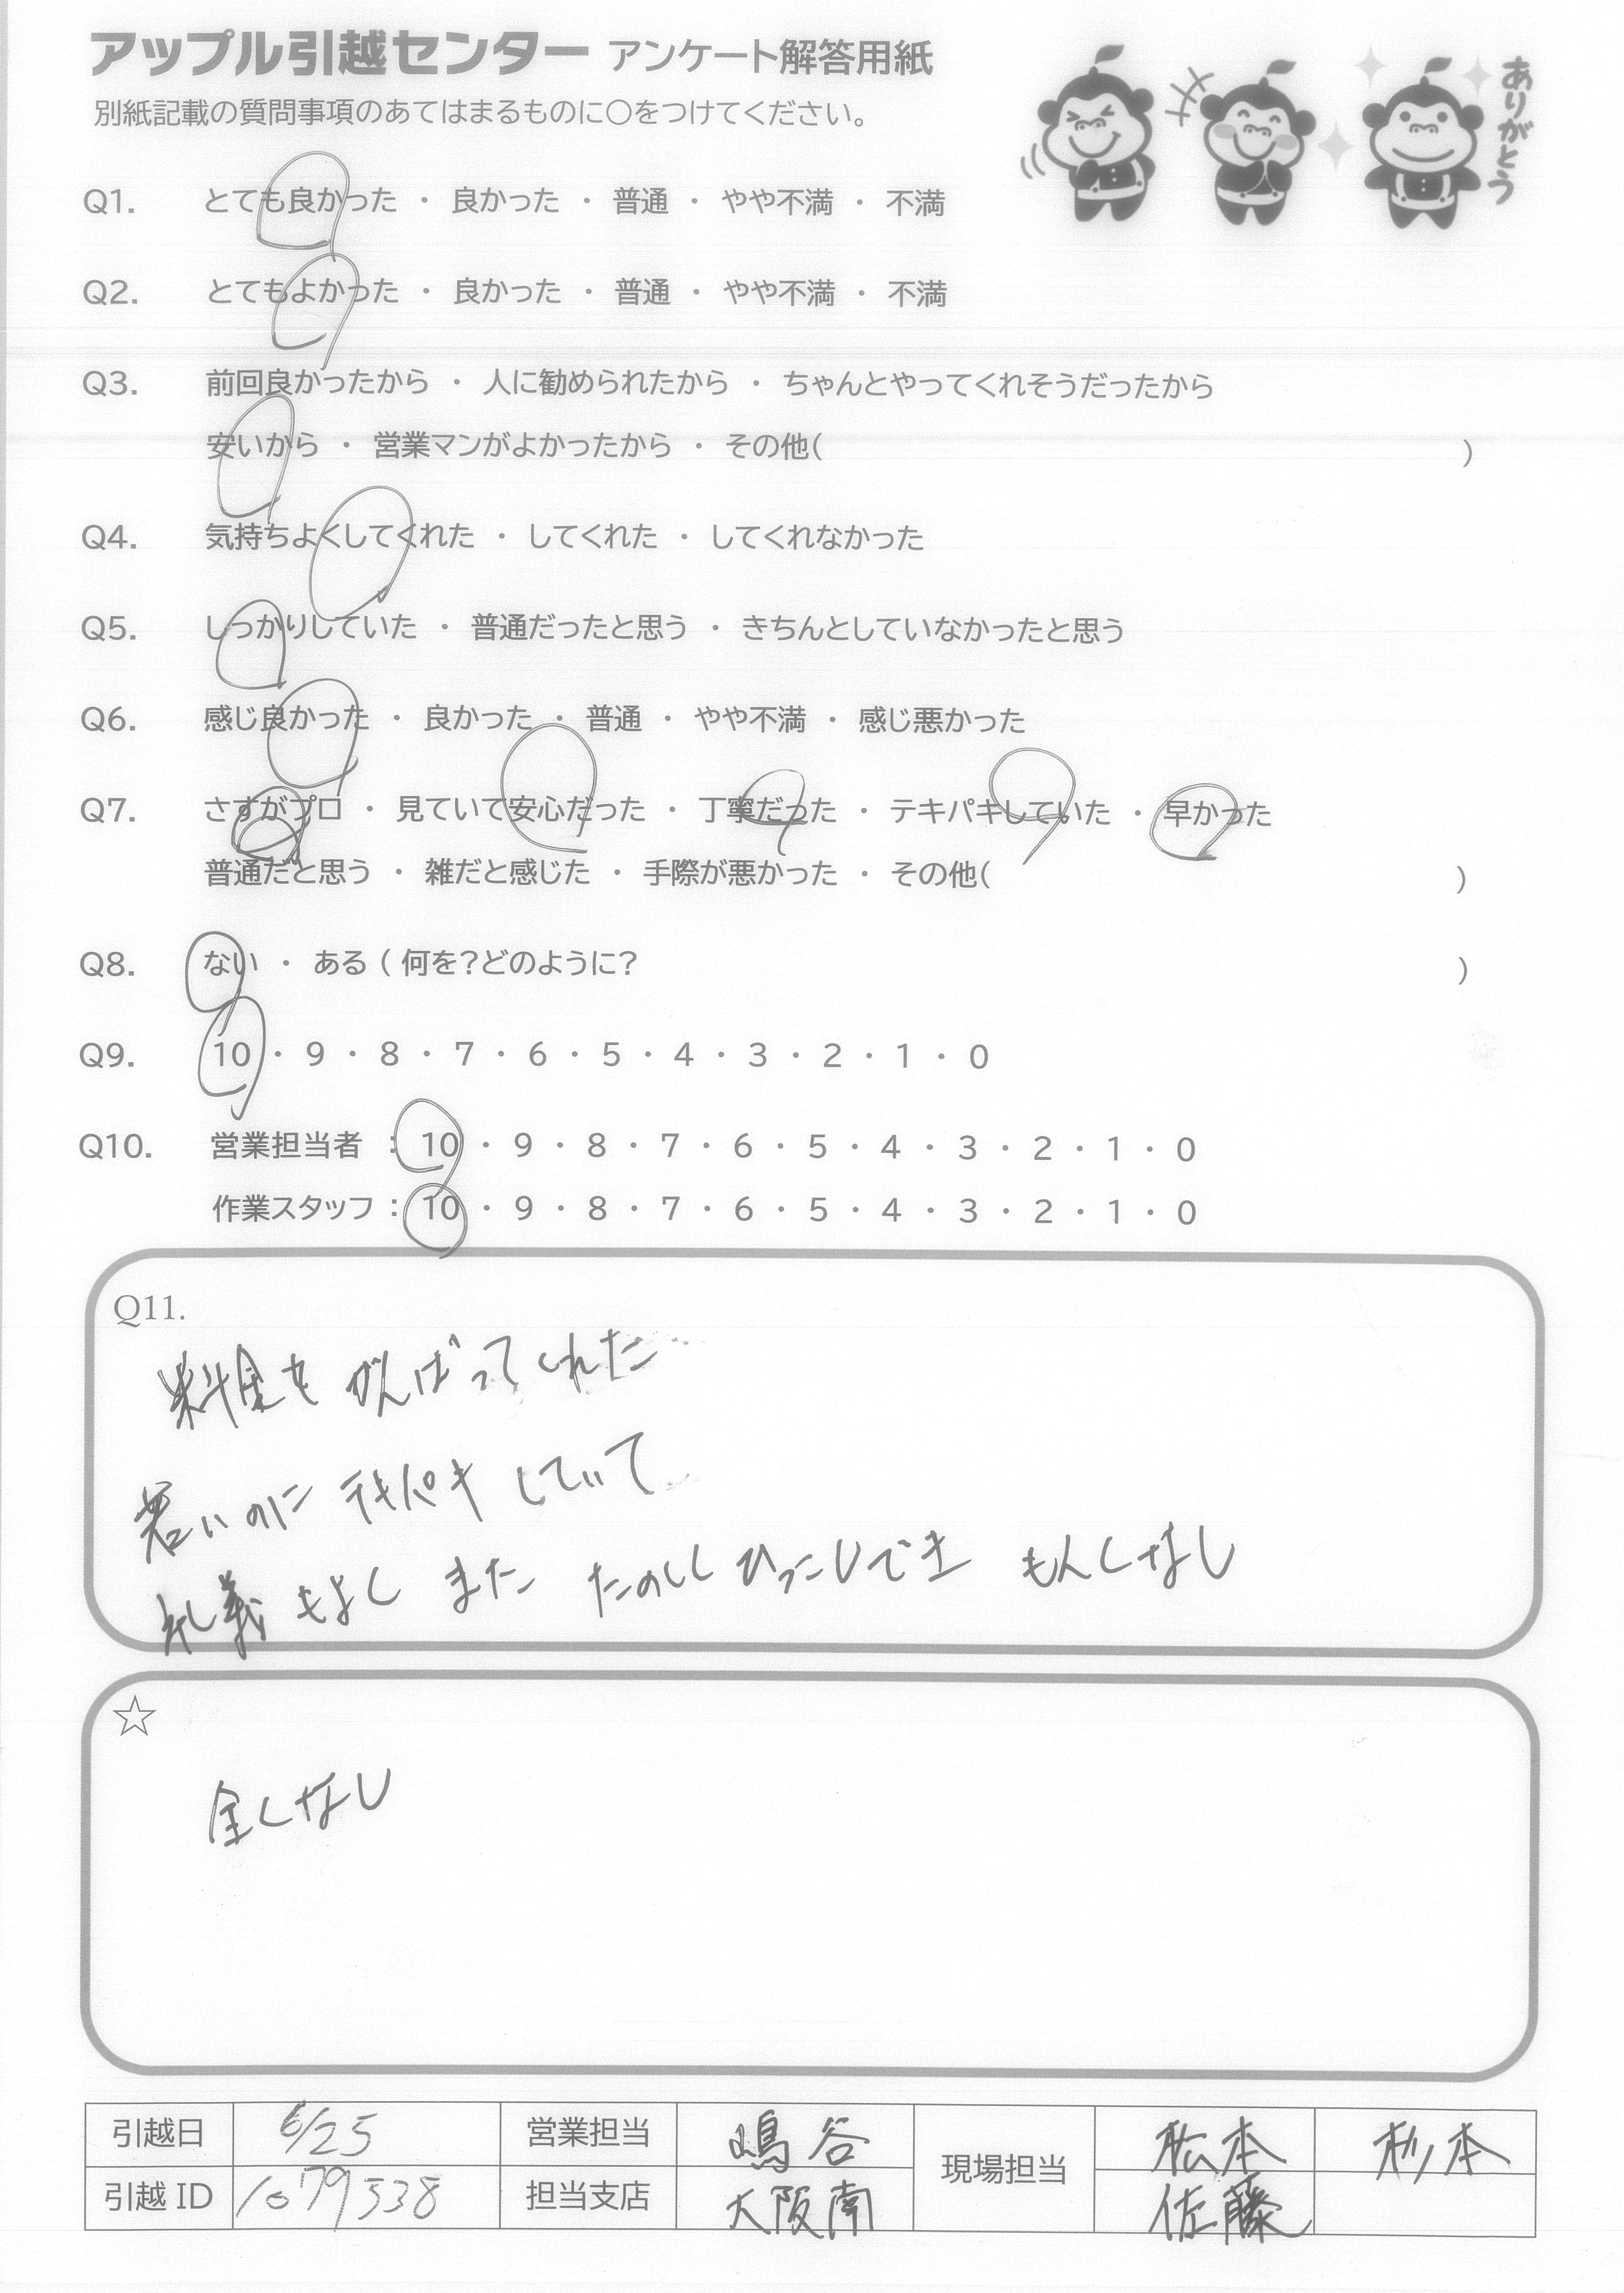 アップル引越センター アンケート解答用紙
別紙記載の質問事項のあてはまるものに○をつけてください。
ありがとう
Q1. とても良かった ・ 良かった ・ 普通 ・ やや不満 ・ 不満
Q2. とてもよかった ・ 良かった ・ 普通 ・ やや不満 ・ 不満
Q3. 前回良かったから ・ 人に勧められたから ・ ちゃんとやってくれそうだったから
安いから ・ 営業マンがよかったから ・ その他( )
Q4. 気持ちよくしてくれた ・ してくれた ・ してくれなかった
Q5. しっかりしていた ・ 普通だったと思う ・ きちんとしていなかったと思う
Q6. 感じ良かった ・ 良かった ・ 普通 ・ やや不満 ・ 感じ悪かった
Q7. さすがプロ ・ 見ていて安心だった ・ 丁寧だった ・ テキパキしていた ・ 早かった
普通だと思う ・ 雑だと感じた ・ 手際が悪かった ・ その他( )
Q8. ない ・ ある ( 何を?どのように? )
Q9. 10 ・ 9 ・ 8 ・ 7 ・ 6 ・ 5 ・ 4 ・ 3 ・ 2 ・ 1 ・ 0
Q10. 営業担当者 : 10 ・ 9 ・ 8 ・ 7 ・ 6 ・ 5 ・ 4 ・ 3 ・ 2 ・ 1 ・ 0
作業スタッフ : 10 ・ 9 ・ 8 ・ 7 ・ 6 ・ 5 ・ 4 ・ 3 ・ 2 ・ 1 ・ 0
Q11.
料金も がんばってくれた
若いのに テキパキ していて
礼義 もよく また たのしく ひっこしでき もんくなし
☆
全くなし
引越日 6/25 営業担当 嶋谷 現場担当 松本 杉本
引越 ID 1079538 担当支店 大阪南 佐藤